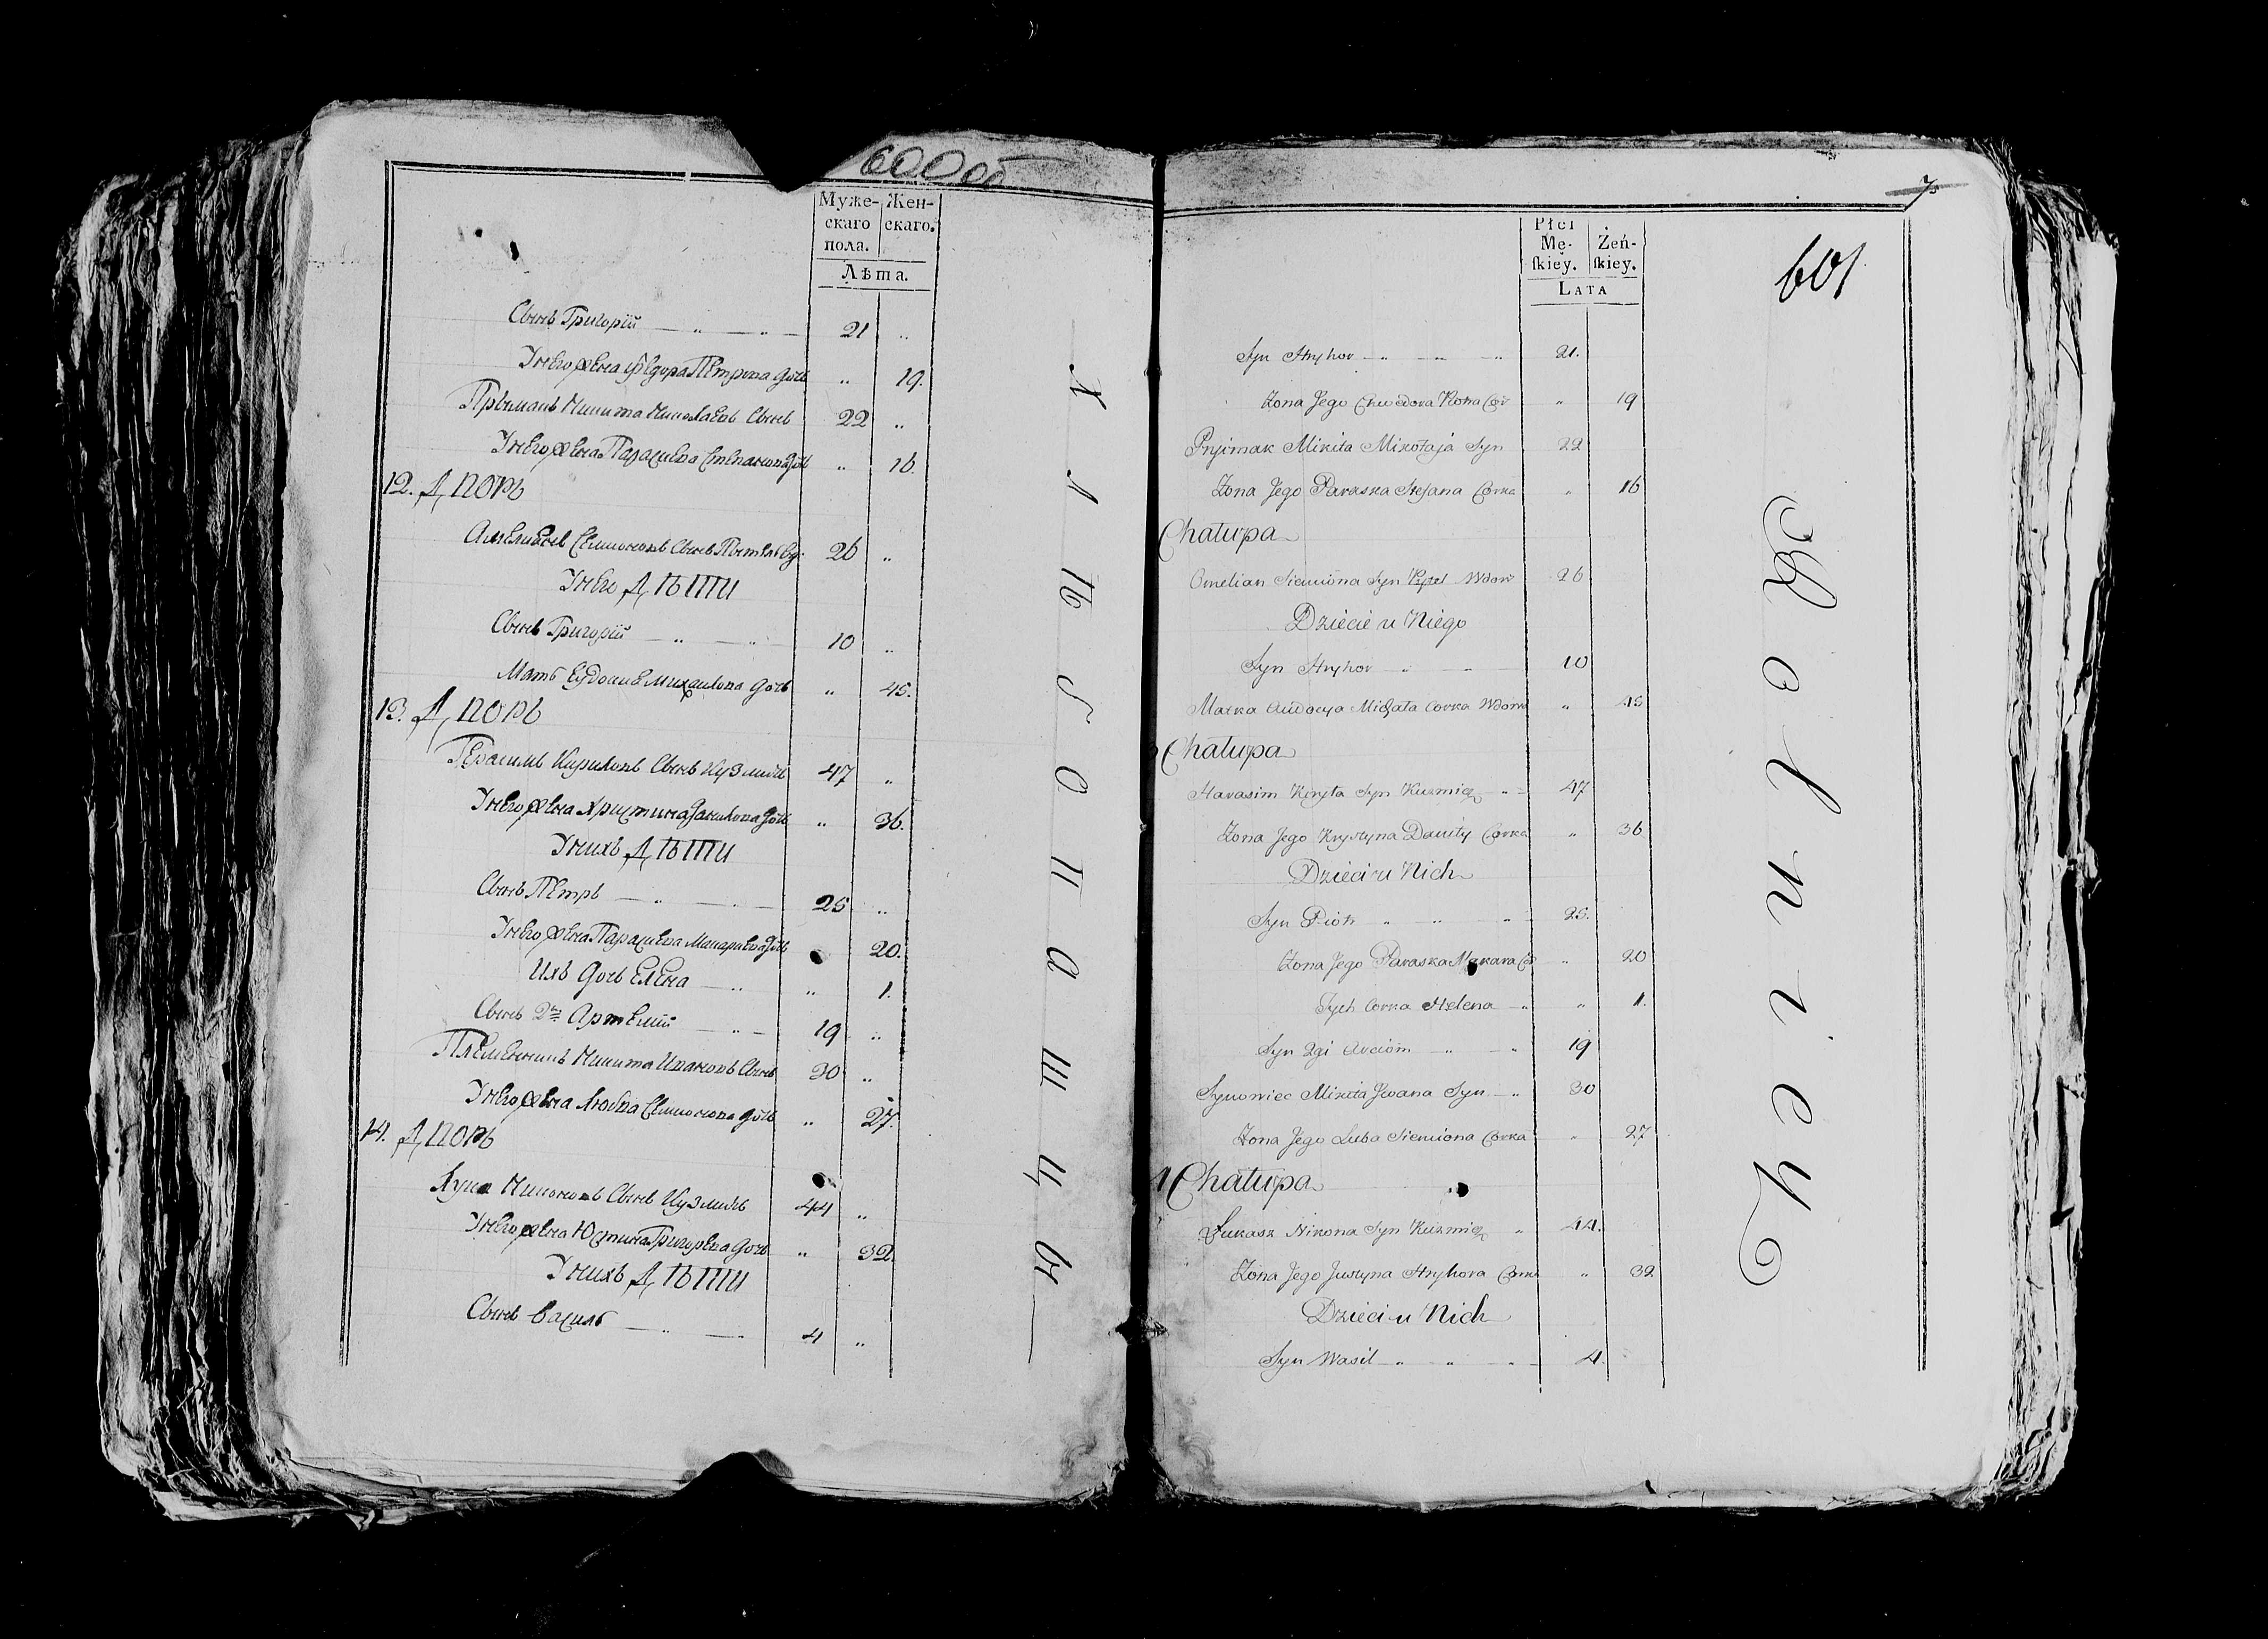 600 об
Муже- Жен-
скаго скаго.
пола.
Лѣта.
Сынъ Григорій — „ — „ — 21 „
У него жена Федора Петрова дочь „ 19.
Прымакъ Никита Николаевъ Сынъ 22 „
У него жена Парасцева Степанова дочь „ 16.
12. Дворъ
Амельянъ Семионовъ Сынъ 26 „
У него Дѣти
Сынъ Григорій — „ — „ 10 „
Мать Еудокия Михаилова дочь „ 45.
13. Дворъ
Герасимъ Кириловъ Сынъ Кузмичъ 47 „
У него жена Христина Данилова дочь „ 36.
У нихъ Дѣти
Сынъ Петръ — „ — „ — 25 „
У него жена Парасцева Макариева дочь 20.
Ихъ дочь Елена — „ „ 1.
Сынъ 2й Артемий — „ — 19 „
Племенникъ Никита Ивановъ Сынъ 30 „
У него жена Любва Семионова дочь „ 27.
14. Дворъ
Лука Никоновъ Сынъ Кузмичъ 44 „
У него жена Юстина Григорева дочь „ 32.
У нихъ Дѣти
Сынъ Василь — „ — 4 „
Хлѣбопашцы
7
601
Płci
Mę- Żeń-
skiey. skiey.
Lata
Syn Hryhor — „ — „ 21.
Żona Jego Chwedora Piotra Cor „ 19
Pryimak Mikita Mikołaja Syn 22
Żona Jego Paraska Stefana Corka „ 16
Chałupa
Omelian Siemiona Syn Wdow 26
Dziecie u Niego
Syn Hryhor „ — 10
Matka Audocya Michała Corka Wdowa „ 45
Chałupa
Harasim Kiryła Syn Kuzmicz „ 47
Żona Jego Krystyna Daniły Corka „ 36
Dzieci u Nich
Syn Piotr „ „ „ 25.
Żona Jego Paraska Makara Cor „ 20
Jych Corka Helena „ „ 1.
Syn 2gi Arciom „ „ 19
Synowiec Mikita Jwana Syn — „ 30
Żona Jego Luba Siemiona Corka „ 27
Chałupa
Łukasz Nikona Syn Kuzmicz „ 44.
Żona Jego Justyna Hryhora Corka „ 32
Dzieci u Nich
Syn Wasil — „ „ „ 4.
Rolnicy